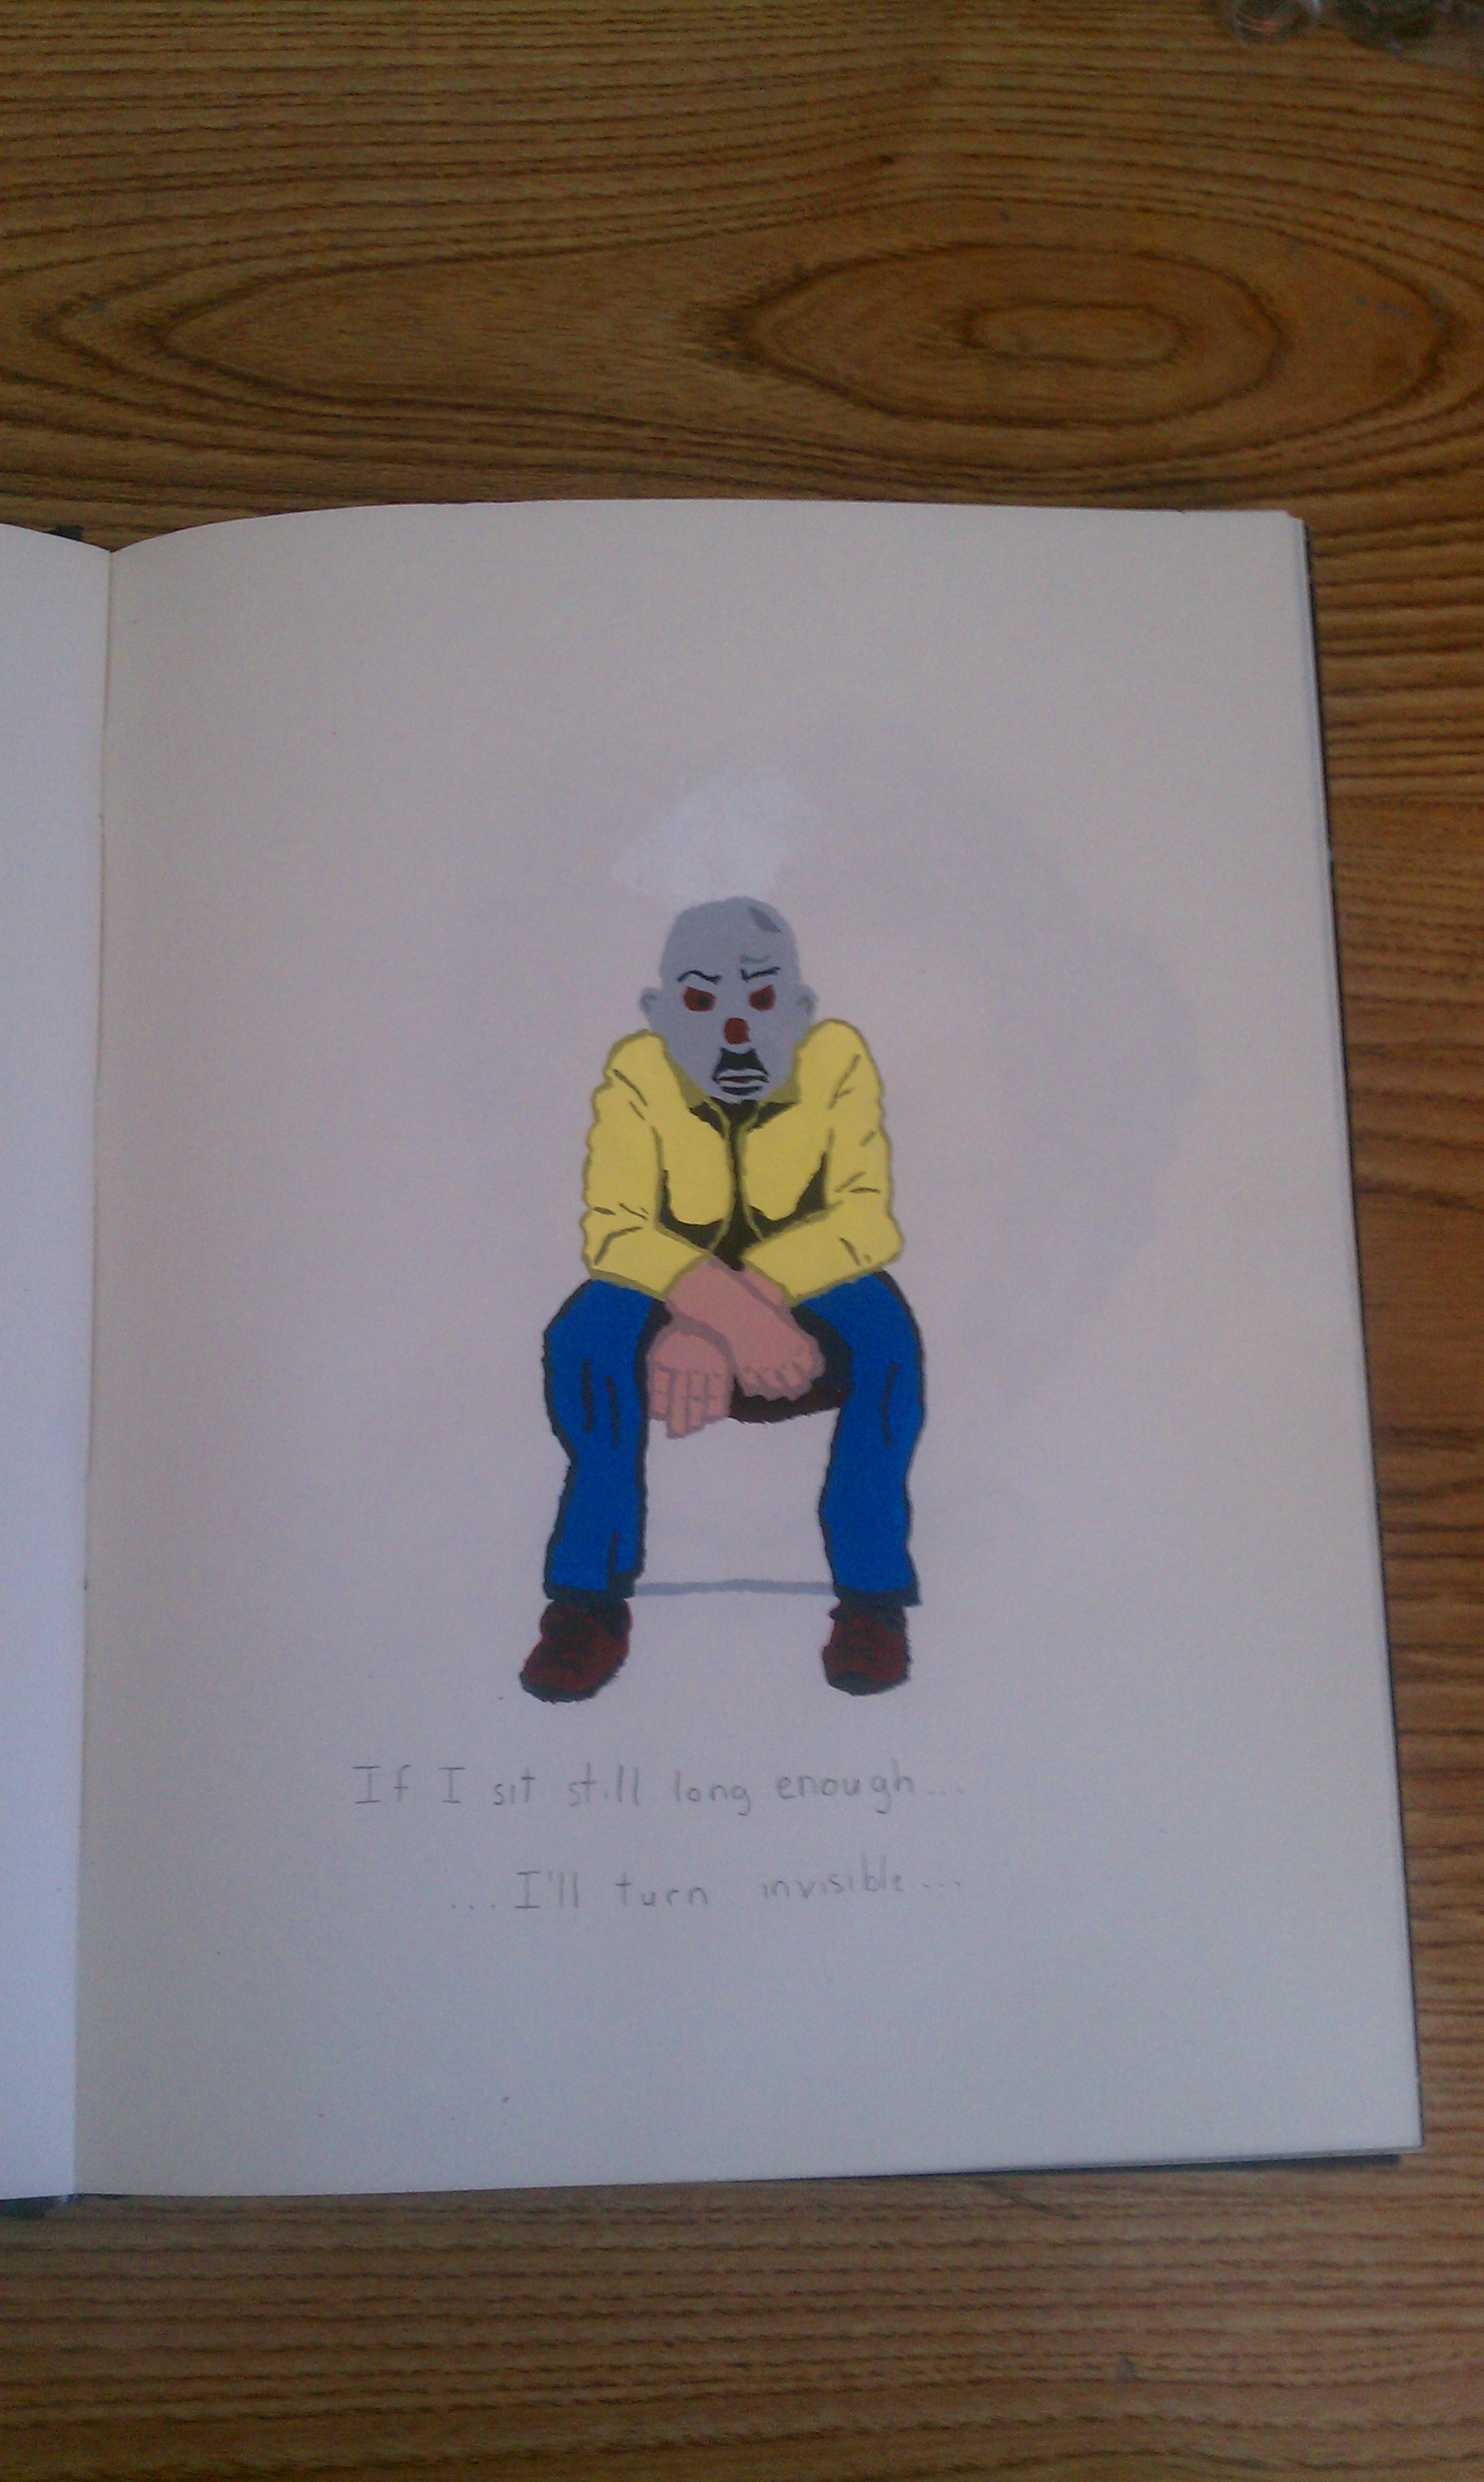 If I sit still long enough...
...I'll turn invisible...